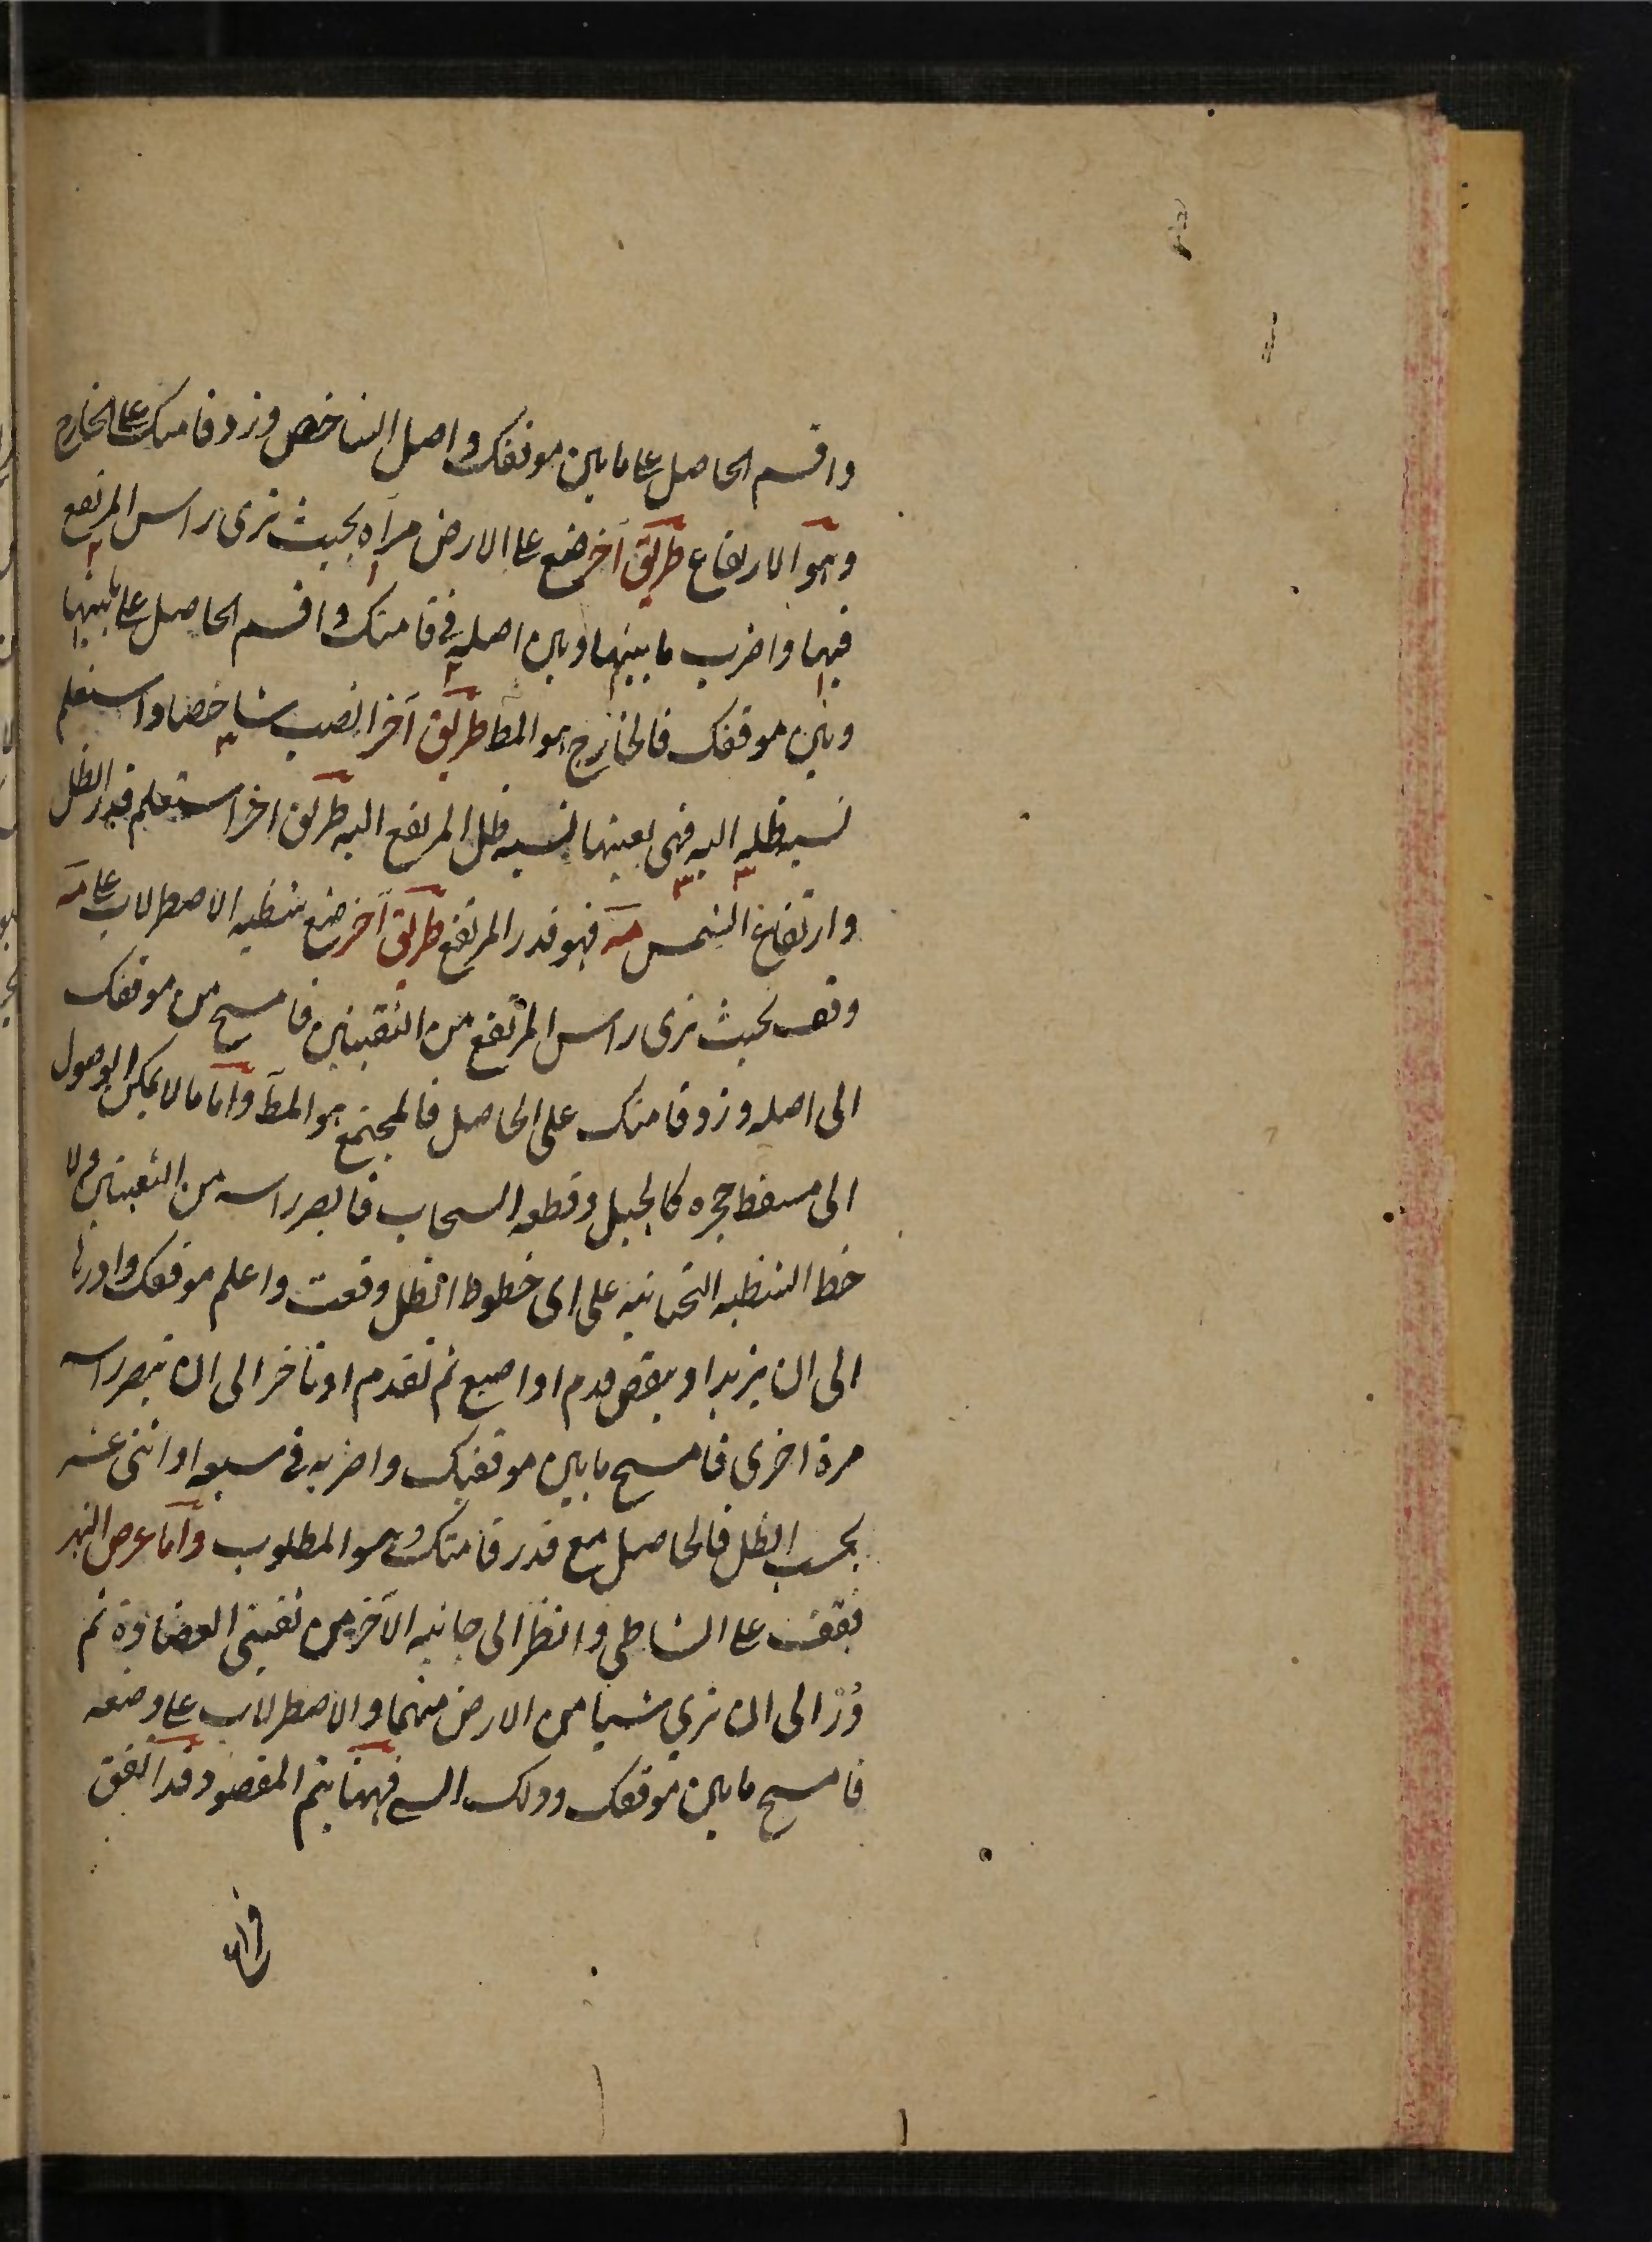 واقسم الحاصل على ما بين موقفك واصل الشاخص وزد قامتك على الخارج
وهو الارتفاع طريق آخر ضع على الارض مرآة بحيث ترى راس المرتفع
فيها واضرب ما بينها وبين اصله في قامتك واقسم الحاصل على ما بينها
وبين موقفك فالخارج هو المط طريق آخر انصب شاخصا واستعلم
نسبة ظله اليه فهى بعينها نسبة ظل المرتفع اليه طريق اخر استعلم قدر الظل
وارتفاع الشمس مه فهو قدر المرتفع طريق آخر ضع شظيه الاصطرلاب على مه
وقف بحيث ترى راس المرتفع من الثقبتين فامسح من موقفك
الى اصله وزد قامتك على الحاصل فالمجتمع هو المط واما ما لا يمكن الوصول
الى مسقط حجره كالجبل وقطعه السحاب فابصر راسه من الثقبتين ولا
خط الشظيه التحتانيه على اى خطوط الظل وقعت واعلم موقفك وادرها
الى ان يزيد او ينقص قدم او اصبع ثم تقدم او تاخر الى ان تبصر راسه
مرة اخرى فامسح ما بين موقفيك واضربه فى سبعه او اثنى عشر
بحسب الظل فالحاصل مع قدر قامتك هو المطلوب واما عرض النهر
فقف على الشاطى وانظر الى جانبه الآخر من ثقبتى العضادة ثم
دُرْ الى ان ترى شيئا من الارض منهما والاصطرلاب على وضعه
فامسح ما بين موقفك وذلك الشى فههنا يتم المقصود وقد اتفق